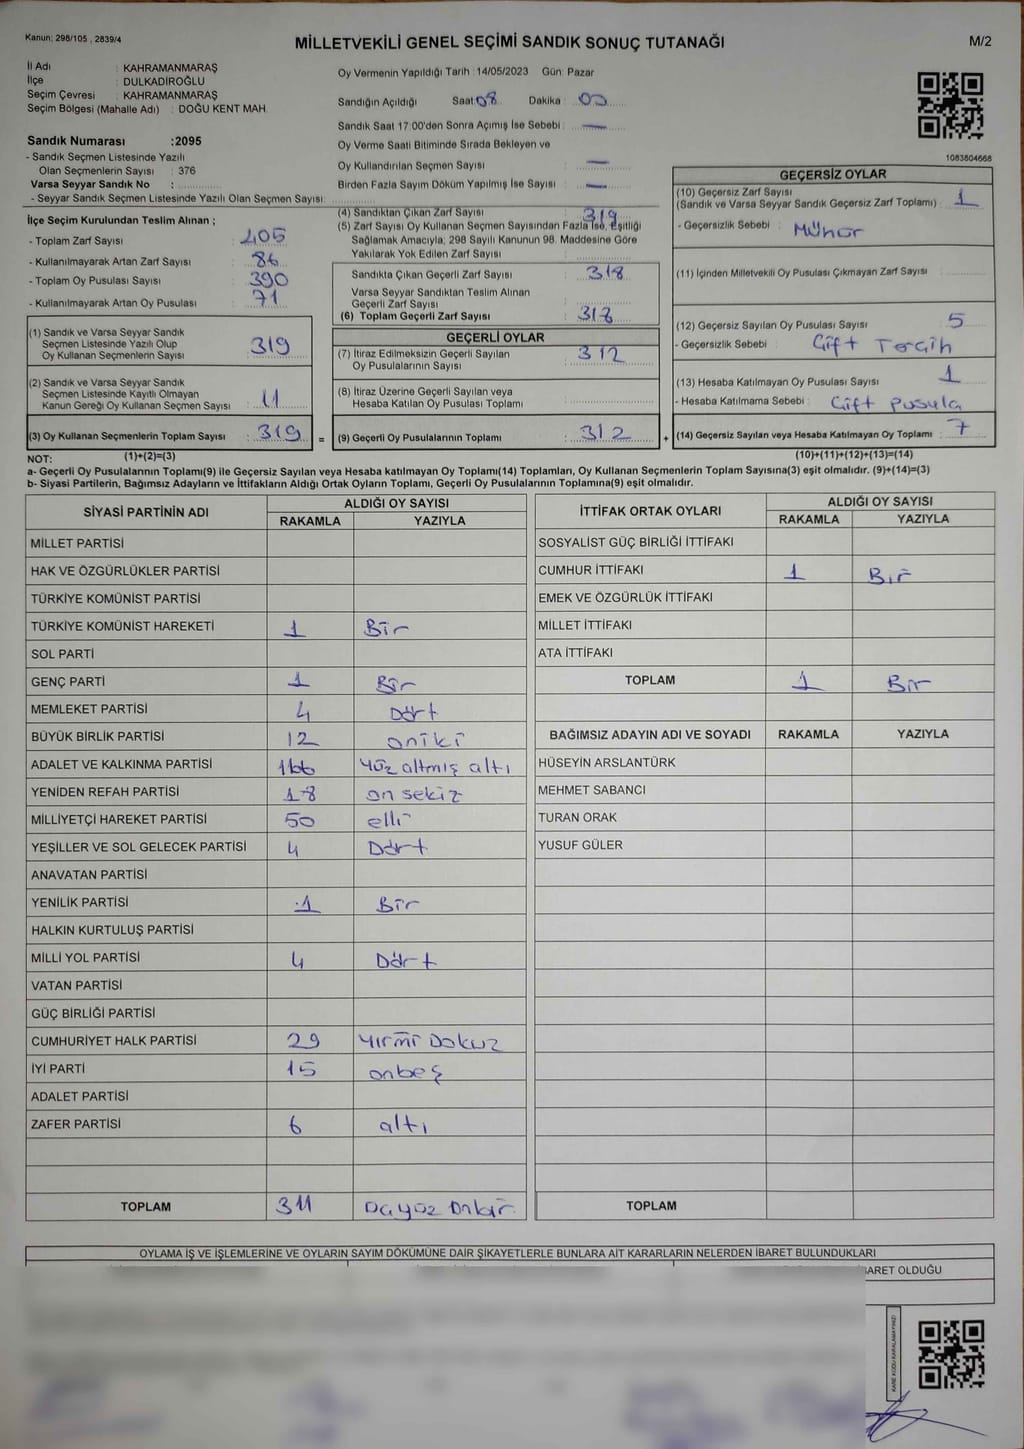 Kanun: 298/105 , 2839/4
MİLLETVEKİLİ GENEL SEÇİMİ SANDIK SONUÇ TUTANAĞI
M/2
İl Adı : KAHRAMANMARAŞ
İlçe : DULKADİROĞLU
Seçim Çevresi : KAHRAMANMARAŞ
Seçim Bölgesi (Mahalle Adı) : DOĞU KENT MAH.
Sandık Numarası :2095
- Sandık Seçmen Listesinde Yazılı
Olan Seçmenlerin Sayısı : 376
Varsa Seyyar Sandık No :
- Seyyar Sandık Seçmen Listesinde Yazılı Olan Seçmen Sayısı:
Oy Vermenin Yapıldığı Tarih :14/05/2023 Gün: Pazar
Sandığın Açıldığı Saat:08 Dakika : 00
Sandık Saat 17:00'den Sonra Açımış İse Sebebi : —
Oy Verme Saati Bitiminde Sırada Bekleyen ve
Oy Kullandırılan Seçmen Sayısı : —
Birden Fazla Sayım Döküm Yapılmış İse Sayısı : —
1083804668
İlçe Seçim Kurulundan Teslim Alınan ;
- Toplam Zarf Sayısı : 405
- Kullanılmayarak Artan Zarf Sayısı : 86
- Toplam Oy Pusulası Sayısı : 390
- Kullanılmayarak Artan Oy Pusulası : 71
(1) Sandık ve Varsa Seyyar Sandık
Seçmen Listesinde Yazılı Olup
Oy Kullanan Seçmenlerin Sayısı : 319
(2) Sandık ve Varsa Seyyar Sandık
Seçmen Listesinde Kayıtlı Olmayan
Kanun Gereği Oy Kullanan Seçmen Sayısı :
(3) Oy Kullanan Seçmenlerin Toplam Sayısı : 319 =
(4) Sandıktan Çıkan Zarf Sayısı : 319
(5) Zarf Sayısı Oy Kullanan Seçmen Sayısından Fazla İse, Eşitliği
Sağlamak Amacıyla, 298 Sayılı Kanunun 98. Maddesine Göre
Yakılarak Yok Edilen Zarf Sayısı :
Sandıkta Çıkan Geçerli Zarf Sayısı : 318
Varsa Seyyar Sandıktan Teslim Alınan
Geçerli Zarf Sayısı :
(6) Toplam Geçerli Zarf Sayısı : 318
GEÇERLİ OYLAR
(7) İtiraz Edilmeksizin Geçerli Sayılan : 312
Oy Pusulalarının Sayısı
(8) İtiraz Üzerine Geçerli Sayılan veya
Hesaba Katılan Oy Pusulası Toplamı :
(9) Geçerli Oy Pusulalarının Toplamı : 312 +
GEÇERSİZ OYLAR
(10) Geçersiz Zarf Sayısı
(Sandık ve Varsa Seyyar Sandık Geçersiz Zarf Toplamı) : 1
- Geçersizlik Sebebi : Mühür
(11) İçinden Milletvekili Oy Pusulası Çıkmayan Zarf Sayısı :
(12) Geçersiz Sayılan Oy Pusulası Sayısı : 5
- Geçersizlik Sebebi : Çift Tercih
(13) Hesaba Katılmayan Oy Pusulası Sayısı : 1
- Hesaba Katılmama Sebebi : Çift pusula
(14) Geçersiz Sayılan veya Hesaba Katılmayan Oy Toplamı : 7
NOT: (1)+(2)=(3) (10)+(11)+(12)+(13)=(14)
a- Geçerli Oy Pusulalarının Toplamı(9) ile Geçersiz Sayılan veya Hesaba katılmayan Oy Toplamı(14) Toplamları, Oy Kullanan Seçmenlerin Toplam Sayısına(3) eşit olmalıdır. (9)+(14)=(3)
b- Siyasi Partilerin, Bağımsız Adayların ve İttifakların Aldığı Ortak Oyların Toplamı, Geçerli Oy Pusulalarının Toplamına(9) eşit olmalıdır.
SİYASİ PARTİNİN ADI ALDIĞI OY SAYISI
RAKAMLA YAZIYLA
MİLLET PARTİSİ
HAK VE ÖZGÜRLÜKLER PARTİSİ
TÜRKİYE KOMÜNİST PARTİSİ
TÜRKİYE KOMÜNİST HAREKETİ 1 Bir
SOL PARTİ
GENÇ PARTİ 1 Bir
MEMLEKET PARTİSİ 4 Dört
BÜYÜK BİRLİK PARTİSİ 12 oniki
ADALET VE KALKINMA PARTİSİ 166 yüz altmış altı
YENİDEN REFAH PARTİSİ 18 on sekiz
MİLLİYETÇİ HAREKET PARTİSİ 50 elli
YEŞİLLER VE SOL GELECEK PARTİSİ 4 Dört
ANAVATAN PARTİSİ
YENİLİK PARTİSİ 1 Bir
HALKIN KURTULUŞ PARTİSİ
MİLLİ YOL PARTİSİ 4 Dört
VATAN PARTİSİ
GÜÇ BİRLİĞİ PARTİSİ
CUMHURİYET HALK PARTİSİ 29 yirmi Dokuz
İYİ PARTİ 15 onbeş
ADALET PARTİSİ
ZAFER PARTİSİ 6 altı
TOPLAM 311
İTTİFAK ORTAK OYLARI ALDIĞI OY SAYISI
RAKAMLA YAZIYLA
SOSYALİST GÜÇ BİRLİĞİ İTTİFAKI
CUMHUR İTTİFAKI 1 Bir
EMEK VE ÖZGÜRLÜK İTTİFAKI
MİLLET İTTİFAKI
ATA İTTİFAKI
TOPLAM 1 Bir
BAĞIMSIZ ADAYIN ADI VE SOYADI RAKAMLA YAZIYLA
HÜSEYİN ARSLANTÜRK
MEHMET SABANCI
TURAN ORAK
YUSUF GÜLER
TOPLAM
OYLAMA İŞ VE İŞLEMLERİNE VE OYLARIN SAYIM DÖKÜMÜNE DAİR ŞİKAYETLERLE BUNLARA AİT KARARLARIN NELERDEN İBARET BULUNDUKLARI
BARET OLDUĞU
KARE KODU KARALAMAYINIZ!